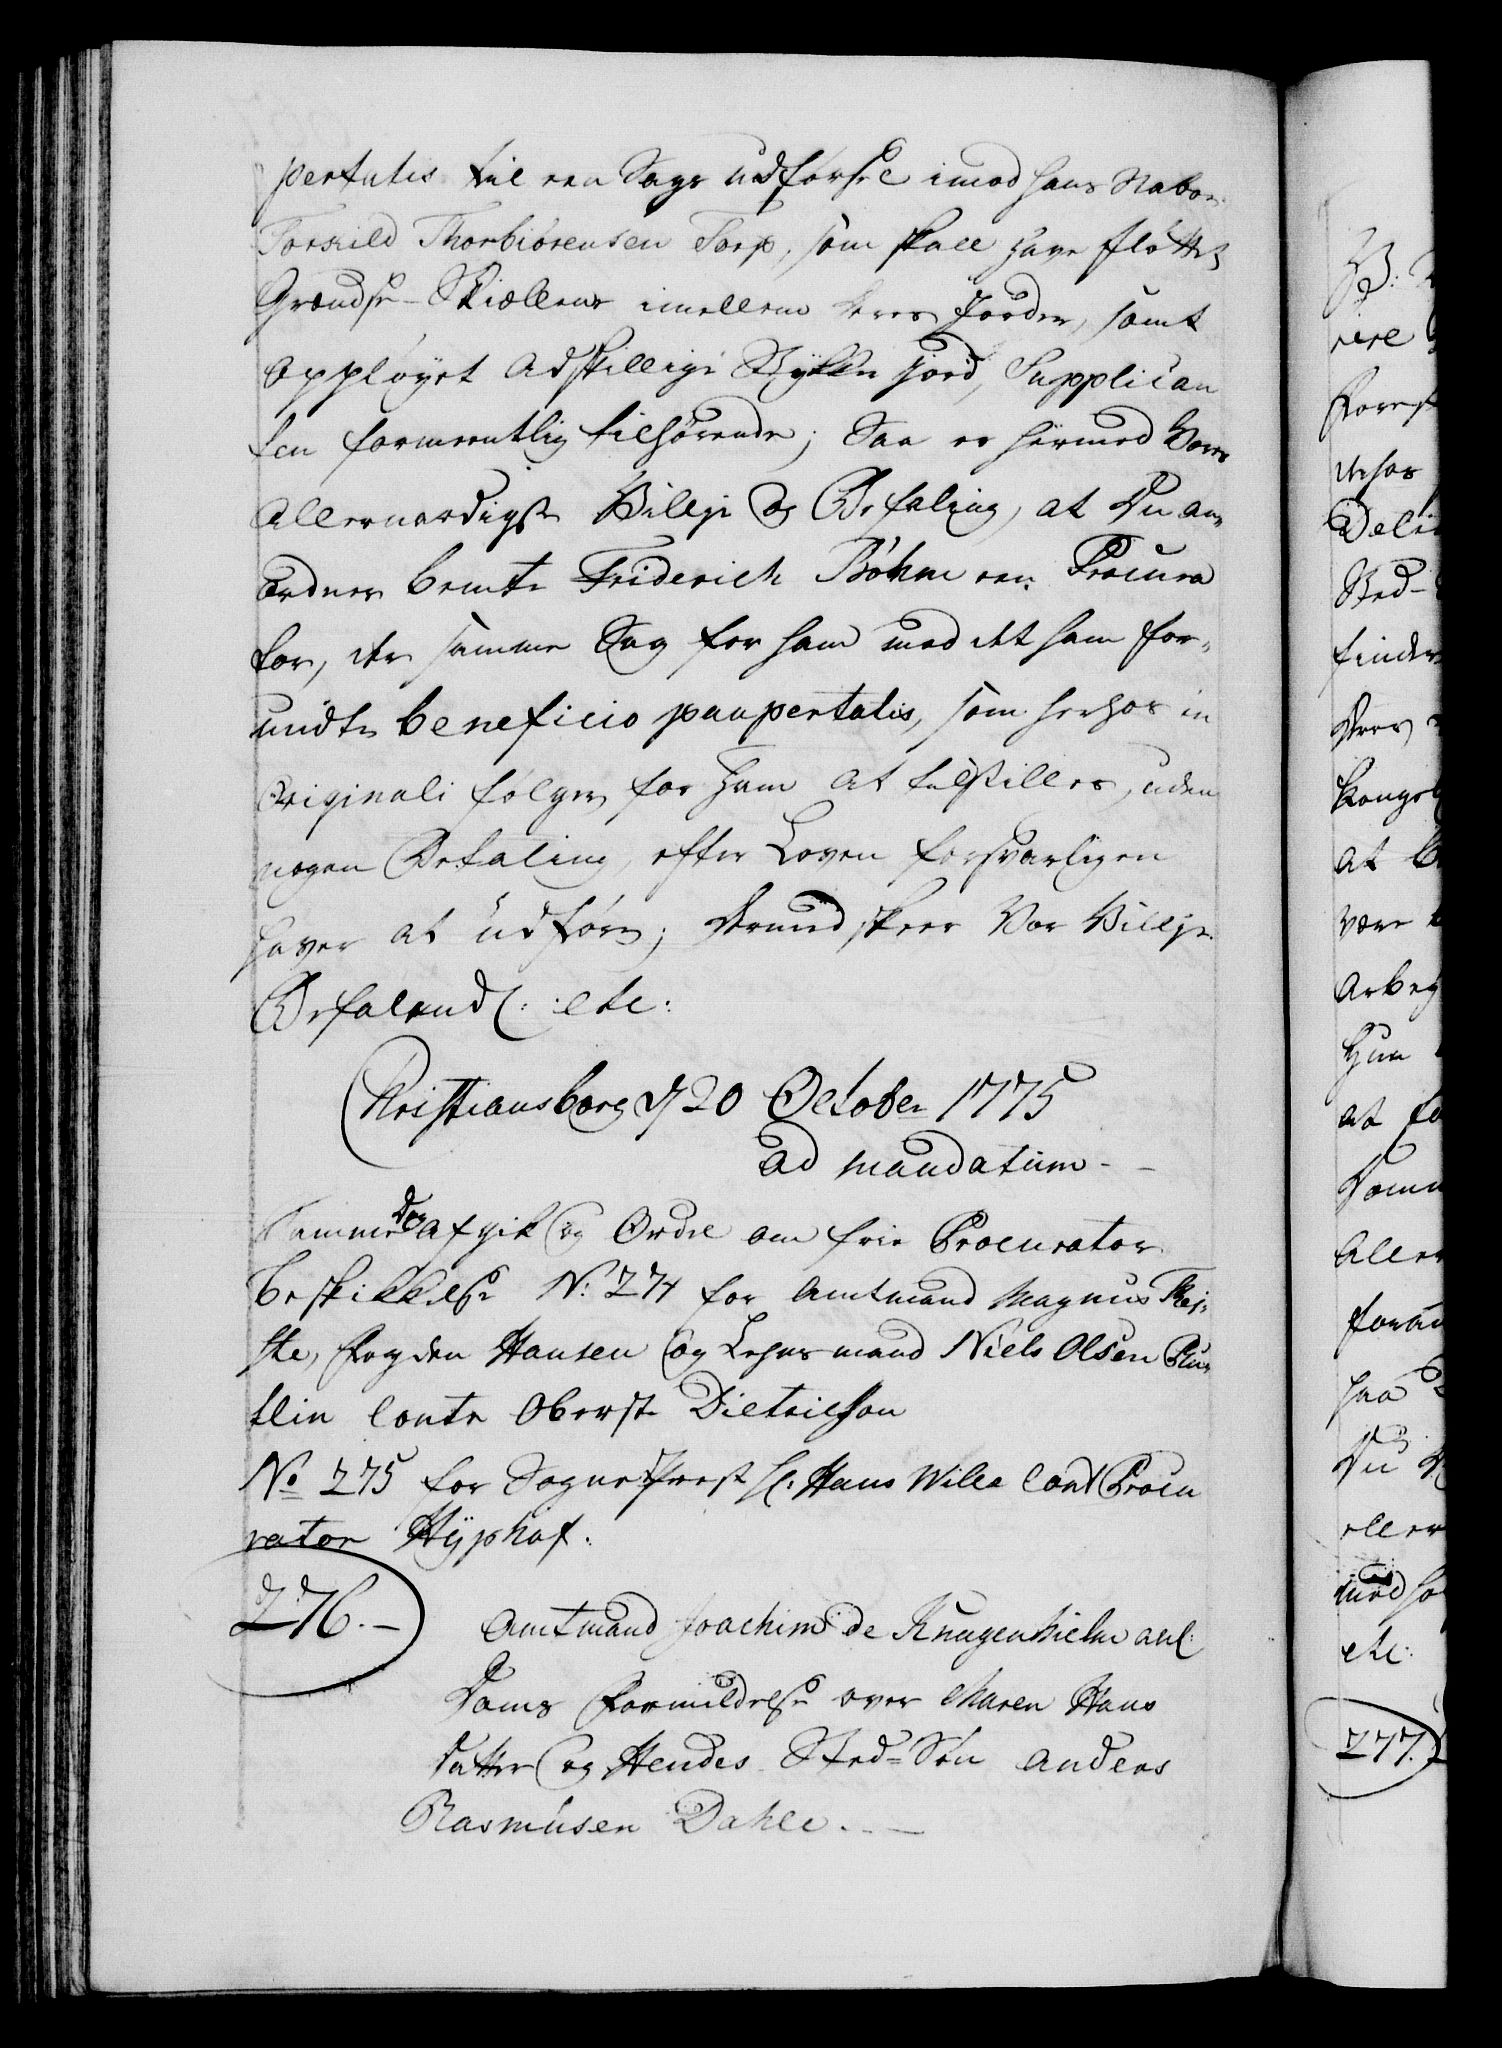 pertatis til een Sags udførsel imod hans Naboe
Torkild Thorbiørensen Torp, som skall have fløttet
Grændse-Skiællene imellem deres Jorder, samt
opployet adskillige Stykker Jord, Supplican
ten formeentlig tilhørende; Saa er hermed Vores
allernaadigste Villje og Befaling, at Du an-
ordner bemte Friderich Bøhm een Procura
tor, der samme Sag for ham med det ham for-
undte beneficio paupertatis, som herhos in
originali følger, for ham at tilstilles, uden
nogen Betaling, efter Loven forsvarligen
haver at udføre; Dermed skeer Vor Villje.
Befalend(: etc:
Christiansborg d 20 October 1775
ad mandatum - -
Samme Dag afgik og Ordre om frie Procurator
beskikkelse N: 274 for Amtmand Magnus Thei-
ste, Fogden Hansen og Lehnsmand Niels Olsen
contr Oberst Dietrichson
No 275 for Sognepræst Hr Hans Wille cont Procu
rator Hyphof.
276. -
Amtmand Joachim de Knagenhielm anl:
Doms Formildelse over Maren Hans
datter og Hendes Sted-Søn Anders
Rasmusen Dahle. - -
277.